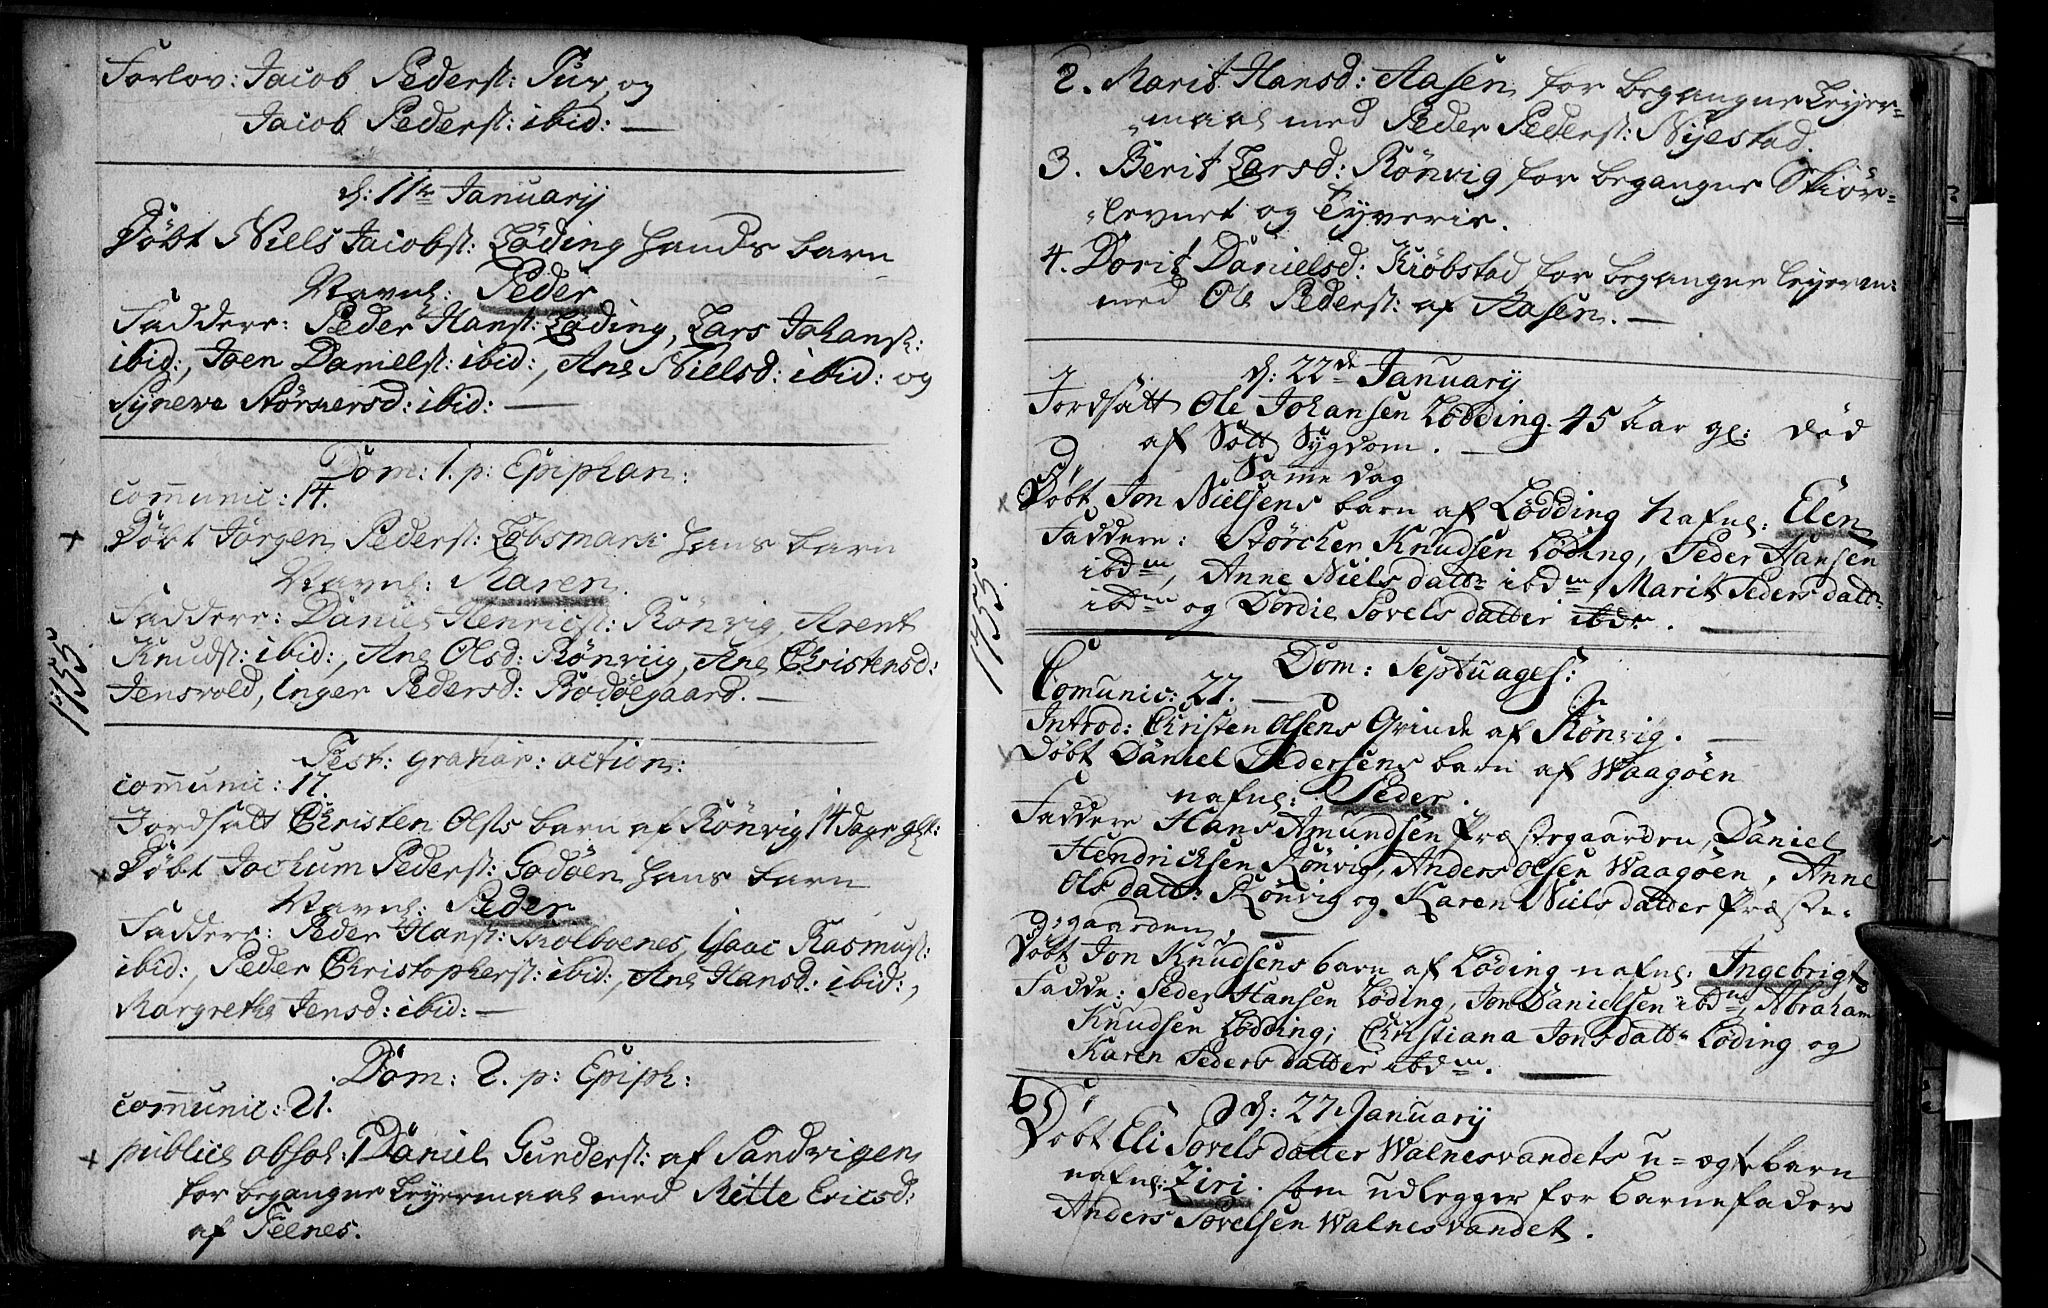 Forlov: Jacob Pederst: Tuv, og
Jacob Pederst: ibid: —
d: 11te Januarij
Döbt Niels Jacobst: Löding hands barn
Navnl: Peder
Faddere: Peder Hanst: Löding, Lars Johanst:
ibid:, Joen Danielst: ibid:, Ane Nielsd: ibid: og
Syneve Störkersd: ibid: —
Dom: 1. p: Epiphan:
communic: 14.
Döbt Jörgen Pederst: Löbsmark hans barn
Navnl: Maren.
Faddere: Daniel Henricst: Rönvig, Arent
Knudst: ibid:, Ane Olsd: Rönviig, Ane Christensd:
Jensvold, Inger Pedersd: Bodöegaard. —
1755.
Fest: gratiar: action:
communic: 17.
Jordsatt Christen Olsts barn af Rönvig 14 dage glt:
Döbt Jochum Pederst: Godöen hans barn
Navnl: Peder
Faddere: Peder Hanst: Kolboenes, Isaac Rasmust:
ibid:, Peder Christopherst: ibid:, Ane Hansd: ibid:,
Margrethe Jensd: ibid: —
Dom: 2. p: Epiph:
communic: 21.
publice absol: 1 Däniel Gunderst: af Sandvigen
for begangne Leyermaal med Mette Ericsd:
af Teenes.
2. Marit Hansd: Aasen for begangne Leyer=
maal med Peder Pederst: Nyestad.
3. Berit Larsd: Rönvig for begangne Skiör=
levnet og Tyverie.
4. Dorit Danielsd: Kiöbstad for begangne leyerm:
med Ole Pederst: af Aasen. —
d: 22de Januarij
Jordsatt Ole Johansen Lödding 45 Aar gl: död
af Sott Sygdom. —
Same dag
Döbt Jon Nielsens barn af Lödding Nafnl: Elen
Faddere: Störchen Knudsen Löding, Peder Hansen
ibdm, Anne Niels datt: ibdm, Marit Peders datt:
ibdm og Dordie Sovels datter ibdm. —
1755.
Dom: Septuages:
Comunic: 27. —
Introd: Christen Olsens Qvinde af Rönvig. —
Döbt Däniel Pedersens barn af Waagöen
nafnl: Peder.
Faddere Hans Amundsen Præstegaarden, Däniel
Hendrichsen Rönvig, Anders Olsen Waagöen, Anne
Ols datt: Rönvig og Karen Niels datter Præste=
gaarden. —
Döbt Jon Knudsens barn af Löding nafnl: Ingebrigt
Fadde: Peder Hansen Löding, Jon Danielsen ibdm, Abraham
Knudsen Lödding; Christiana Jons datt: Löding og
Karen Peders datter ibdm. —
d: 27 Januarij
Döbt Eli Sovels datter Walnesvandets u=ægte barn
nafnl: Ziri. som udlegger for Barnefader
Anders Sovelsen Walnesvandet.